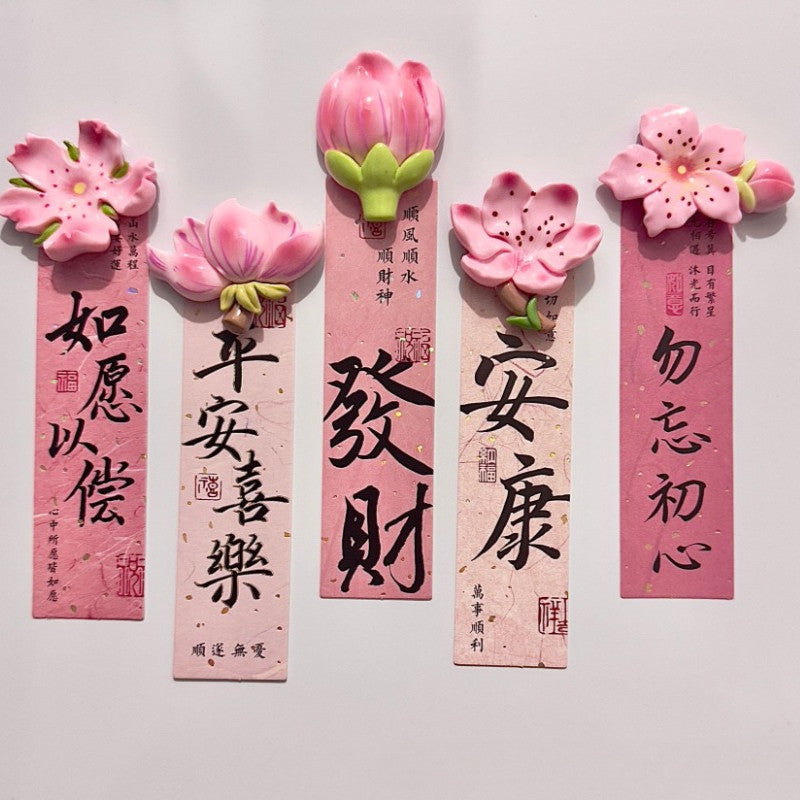 山水萬程
好運
如愿以偿
福
心中所愿皆如愿
平安喜樂
禧
順遂無憂
順風順水
順財神
發財
切如意
安康
福
萬事順利
目有繁星
沐光而行
勿忘初心